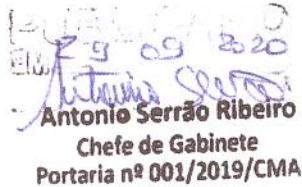 EM
29 09 2020
Antonio Serrão
Antonio Serrão Ribeiro
Chefe de Gabinete
Portaria nº 001/2019/CMA